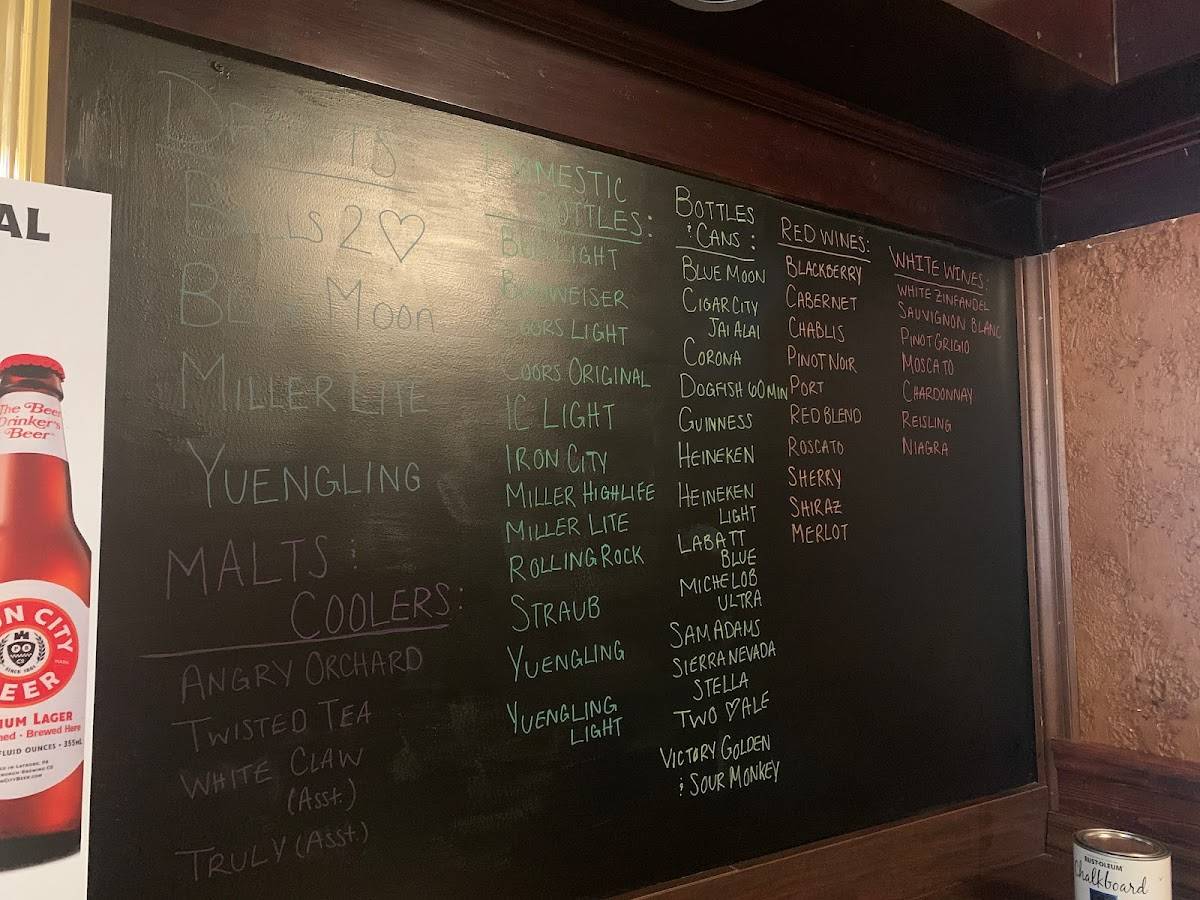 AL
The Beer
Drinker's
Beer
ON CITY
SINCE 1861
BEER
IUM LAGER
ned • Brewed Here
FLUID OUNCES • 355mL
DRAFTS
BELLS 2♡
BLUE MOON
MILLER LITE
YUENGLING
MALTS :
COOLERS:
ANGRY ORCHARD
TWISTED TEA
WHITE CLAW
(Asst.)
TRULY (Asst.)
DOMESTIC
BOTTLES:
BUD LIGHT
BUDWEISER
COORS LIGHT
COORS ORIGINAL
IC LIGHT
IRON CITY
MILLER HIGHLIFE
MILLER LITE
ROLLING ROCK
STRAUB
YUENGLING
YUENGLING
LIGHT
BOTTLES
& CANS:
BLUE MOON
CIGAR CITY
JAI ALAI
CORONA
DOGFISH 60 MIN
GUINNESS
HEINEKEN
HEINEKEN
LIGHT
LABATT
BLUE
MICHELOB
ULTRA
SAM ADAMS
SIERRA NEVADA
STELLA
TWO ♡ ALE
VICTORY GOLDEN
& SOUR MONKEY
RED WINES:
BLACKBERRY
CABERNET
CHABLIS
PINOT NOIR
PORT
RED BLEND
ROSCATO
SHERRY
SHIRAZ
MERLOT
WHITE WINES:
WHITE ZINFANDEL
SAUVIGNON BLANC
PINOT GRIGIO
MOSCATO
CHARDONNAY
REISLING
NIAGRA
RUST-OLEUM
Chalkboard